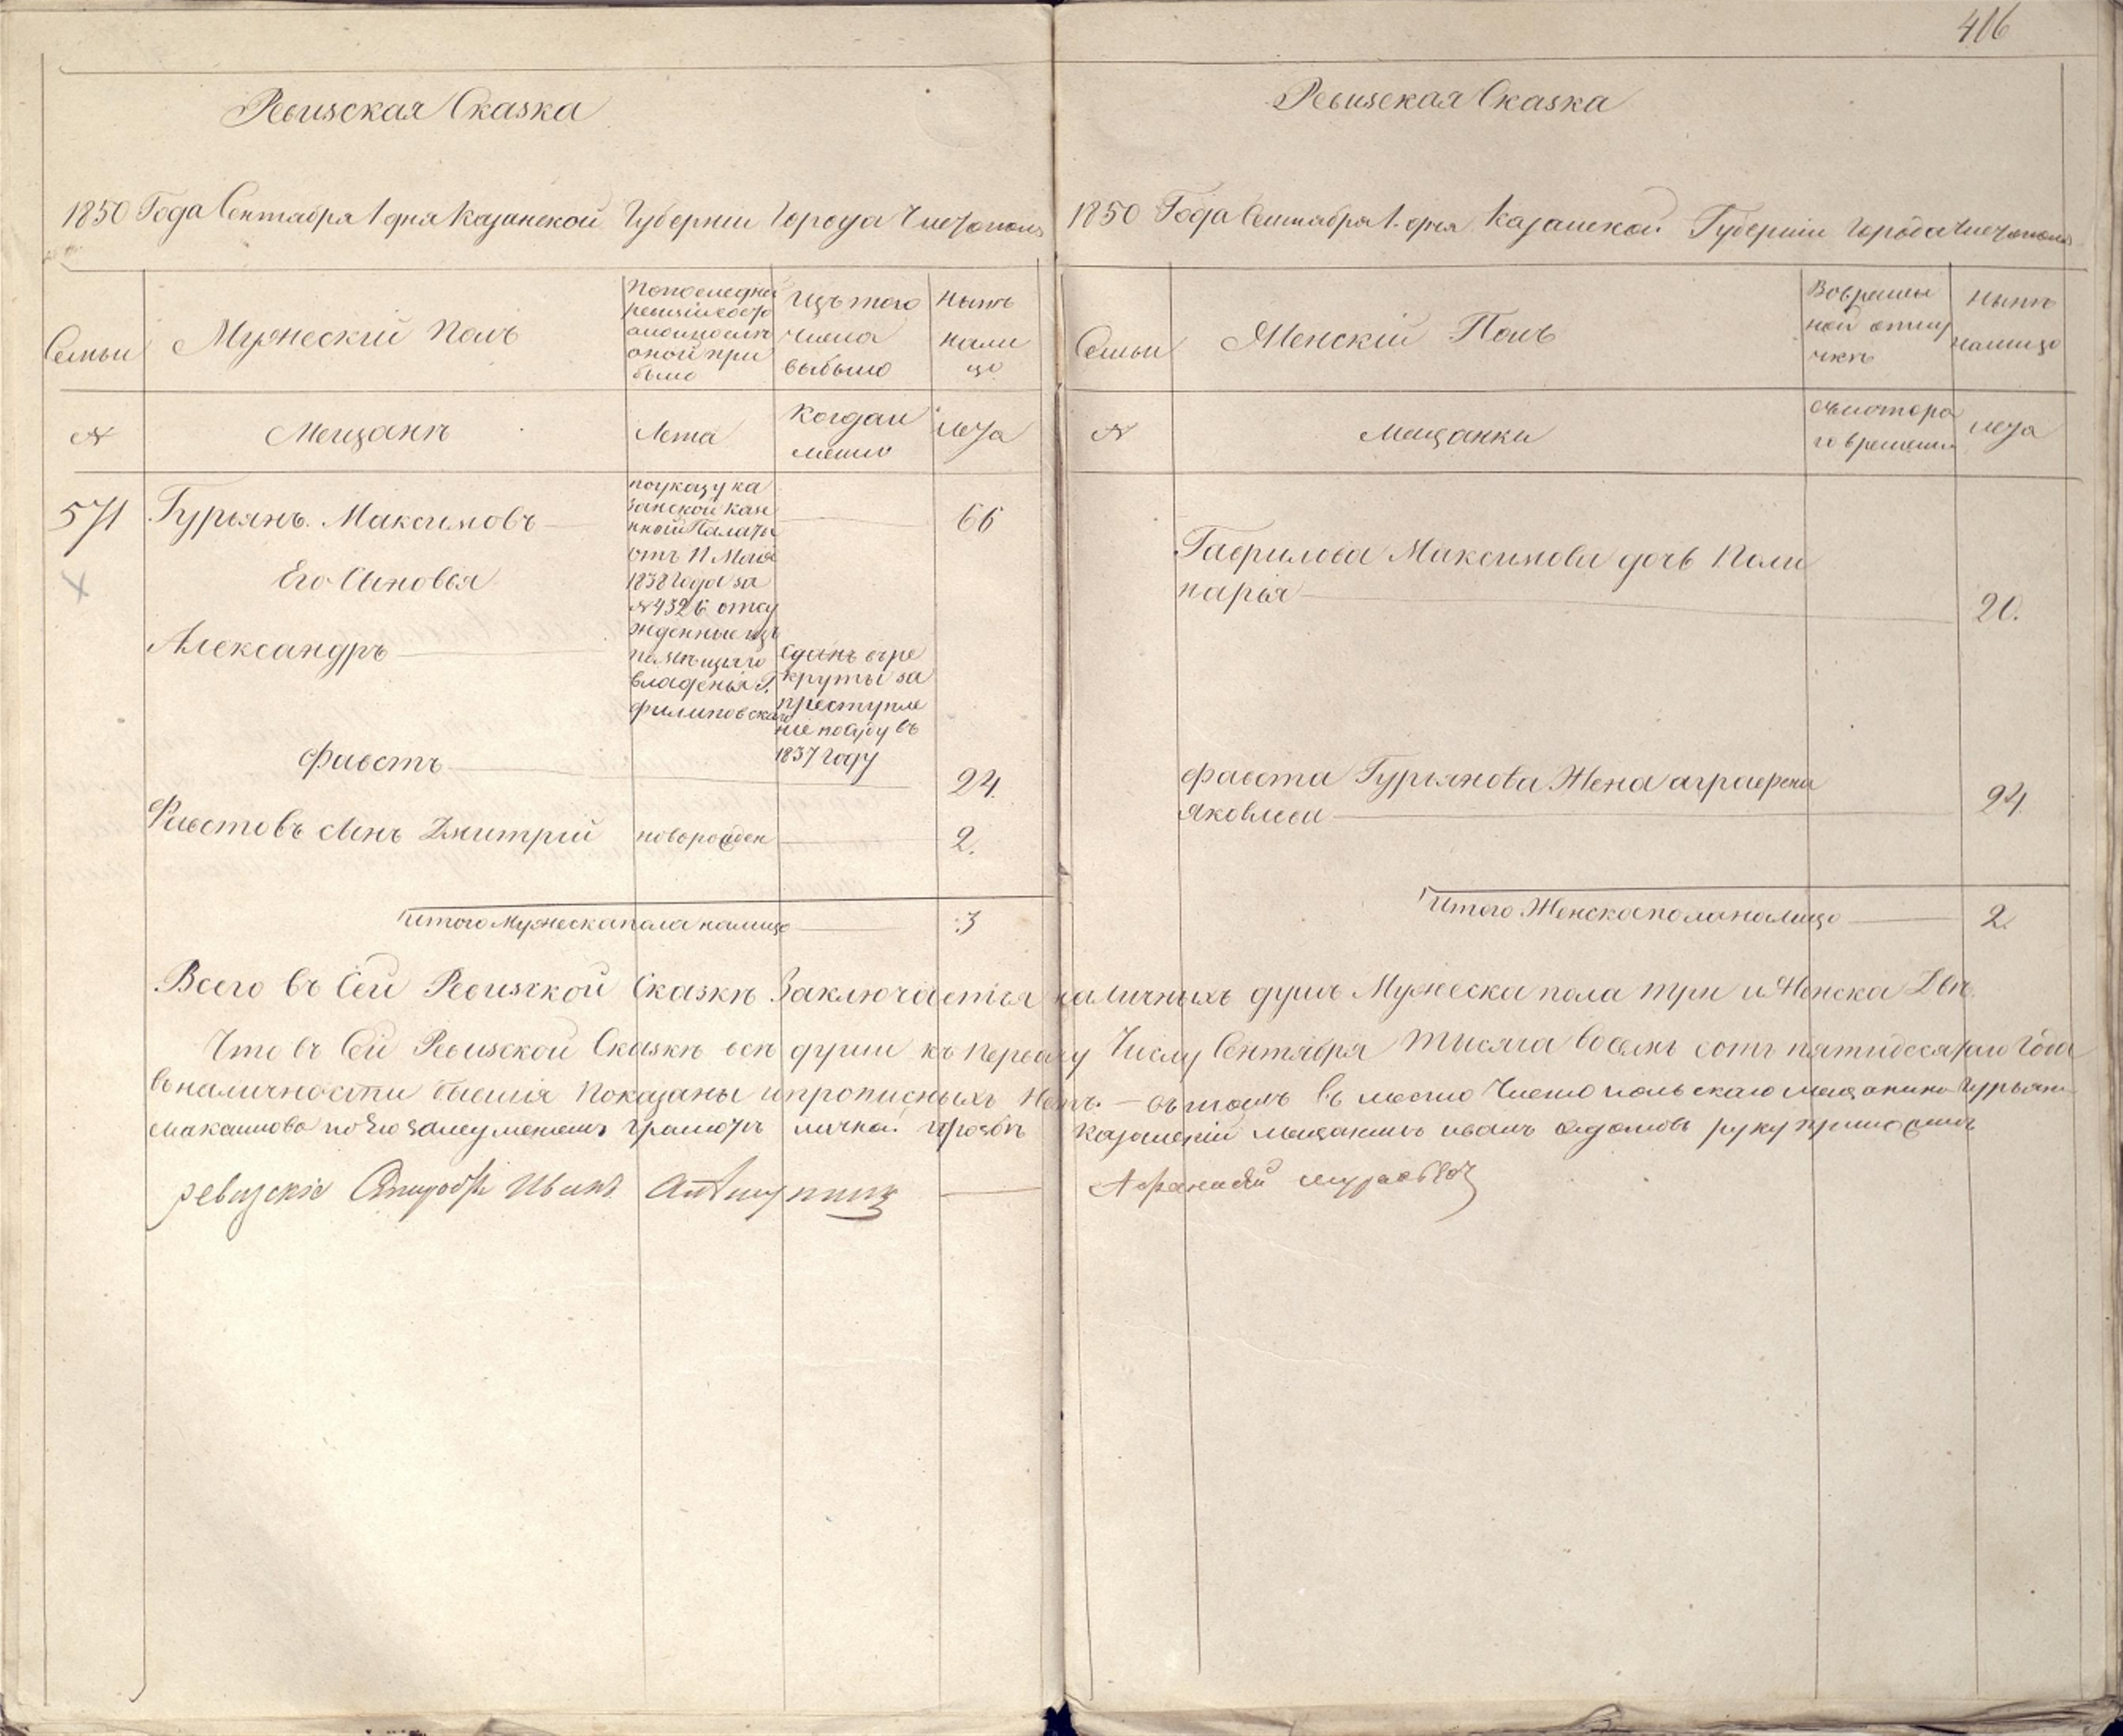 416
Ревизская Сказка
1850 Года Сентября 1 дня Казанской Губернiи Города Чистополя
Семьи
Мужескiй Полъ
Изъ того
числа
выбыло
Нынѣ
нали
цо
№
Мещанѣ
Лета
Когда и
менно
лета
571
Гурьянъ Максимовъ
по указу ка
занской казе
нной Палаты
отъ 11 Мая
1838 Года за
№ 4326 отсу
жденные изъ
помѣщичаго
владенiя Г.
Филиповскаго
66
Его Сыновья
Александръ
Сданъ въ ре
круты за
преступле
нiе
1837 году
Фавстъ
24
Фавстовъ сынъ Дмитрiй
новорожден
2.
Итого Мужеска пола налицо
3
Ревизская Сказка
1850 Года Сентября 1. дня Казанской Губернiи Города Чистополя
Семьи
Женскiй Полъ
Во времен
ной отлу
чкѣ
Нынѣ
налицо
№
Мещанки
съ котора
го времени
лета
Гаврилова Максимова дочь Поли
нарья
20.
Фавста Гурьянова Жена аграфена
Яковлева
24.
Итого Женска пола налицо
2.
Всего въ Сей Ревизской Сказкѣ Заключается наличныхъ душъ Мужеска пола три и Женска Двѣ
Что въ Сей Ревизской Сказкѣ всѣ души къ первому Числу Сентября Тысяча восемь сотъ пятидесятаго Года
въ наличности бывшiя Показаны и прописныхъ Нетъ. — въ томъ въ место Чистопольскаго мещанина Гурьяна
Максимова по Его за неуменiемъ грамотѣ личной прозьбѣ Казанскiй мещанинъ иванъ руку приложилъ
ревизскiе Иванъ
Афанасiй